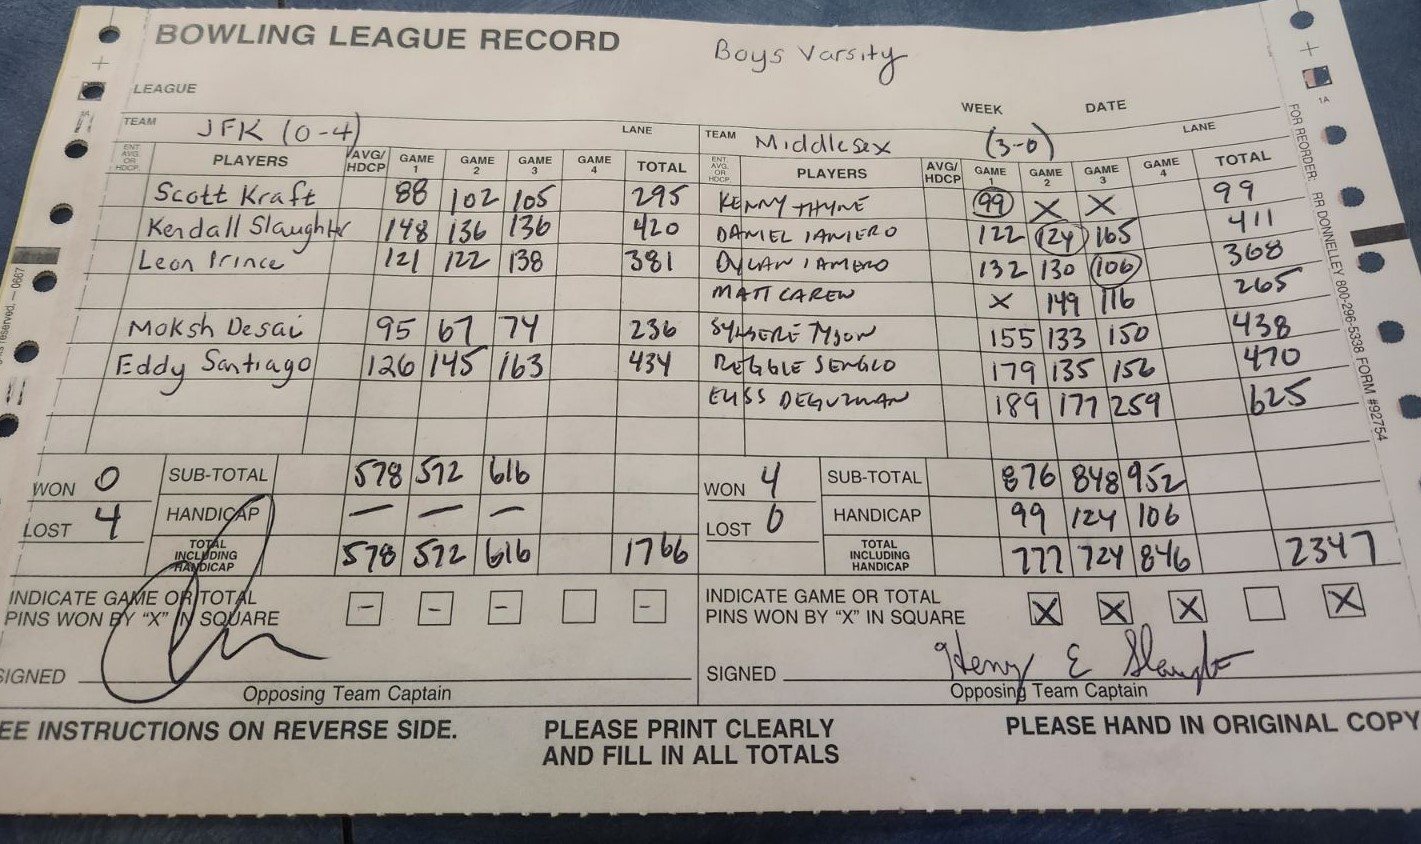 BOWLING LEAGUE RECORD Boys Varsity
LEAGUE
WEEK DATE
TEAM JFK (0-4) LANE TEAM Middlesex (3-0) LANE
ENT. AVG. OR HDCP. PLAYERS AVG/HDCP GAME 1 GAME 2 GAME 3 GAME 4 TOTAL ENT. AVG. OR HDCP. PLAYERS AVG/HDCP GAME 1 GAME 2 GAME 3 GAME 4 TOTAL
Scott Kraft 88 102 105 295 KENNY THYNE 99 X X 99
Kendall Slaughter 148 136 136 420 DANIEL IANIERO 122 124 165 411
Leon Prince 121 122 138 381 DYLAN IANIERO 132 130 106 368
MATT CAREW X 149 116 265
Moksh Desai 95 67 74 236 TYSON 155 133 150 438
Eddy Santiago 126 145 163 434 REGGIE 179 135 156 470
DEGUZMAN 189 177 259 625
WON 0 SUB-TOTAL 578 572 616 WON 4 SUB-TOTAL 876 848 952
LOST 4 HANDICAP — — — LOST 0 HANDICAP 99 124 106
TOTAL INCLUDING HANDICAP 578 572 616 1766 TOTAL INCLUDING HANDICAP 777 724 846 2347
INDICATE GAME OR TOTAL PINS WON BY "X" IN SQUARE - - - - INDICATE GAME OR TOTAL PINS WON BY "X" IN SQUARE X X X X
SIGNED SIGNED Henry E Slaught
Opposing Team Captain Opposing Team Captain
EE INSTRUCTIONS ON REVERSE SIDE. PLEASE PRINT CLEARLY AND FILL IN ALL TOTALS PLEASE HAND IN ORIGINAL COPY
1A
FOR REORDER: RR DONNELLEY 800-296-5338 FORM #92754
reserved. — 0667